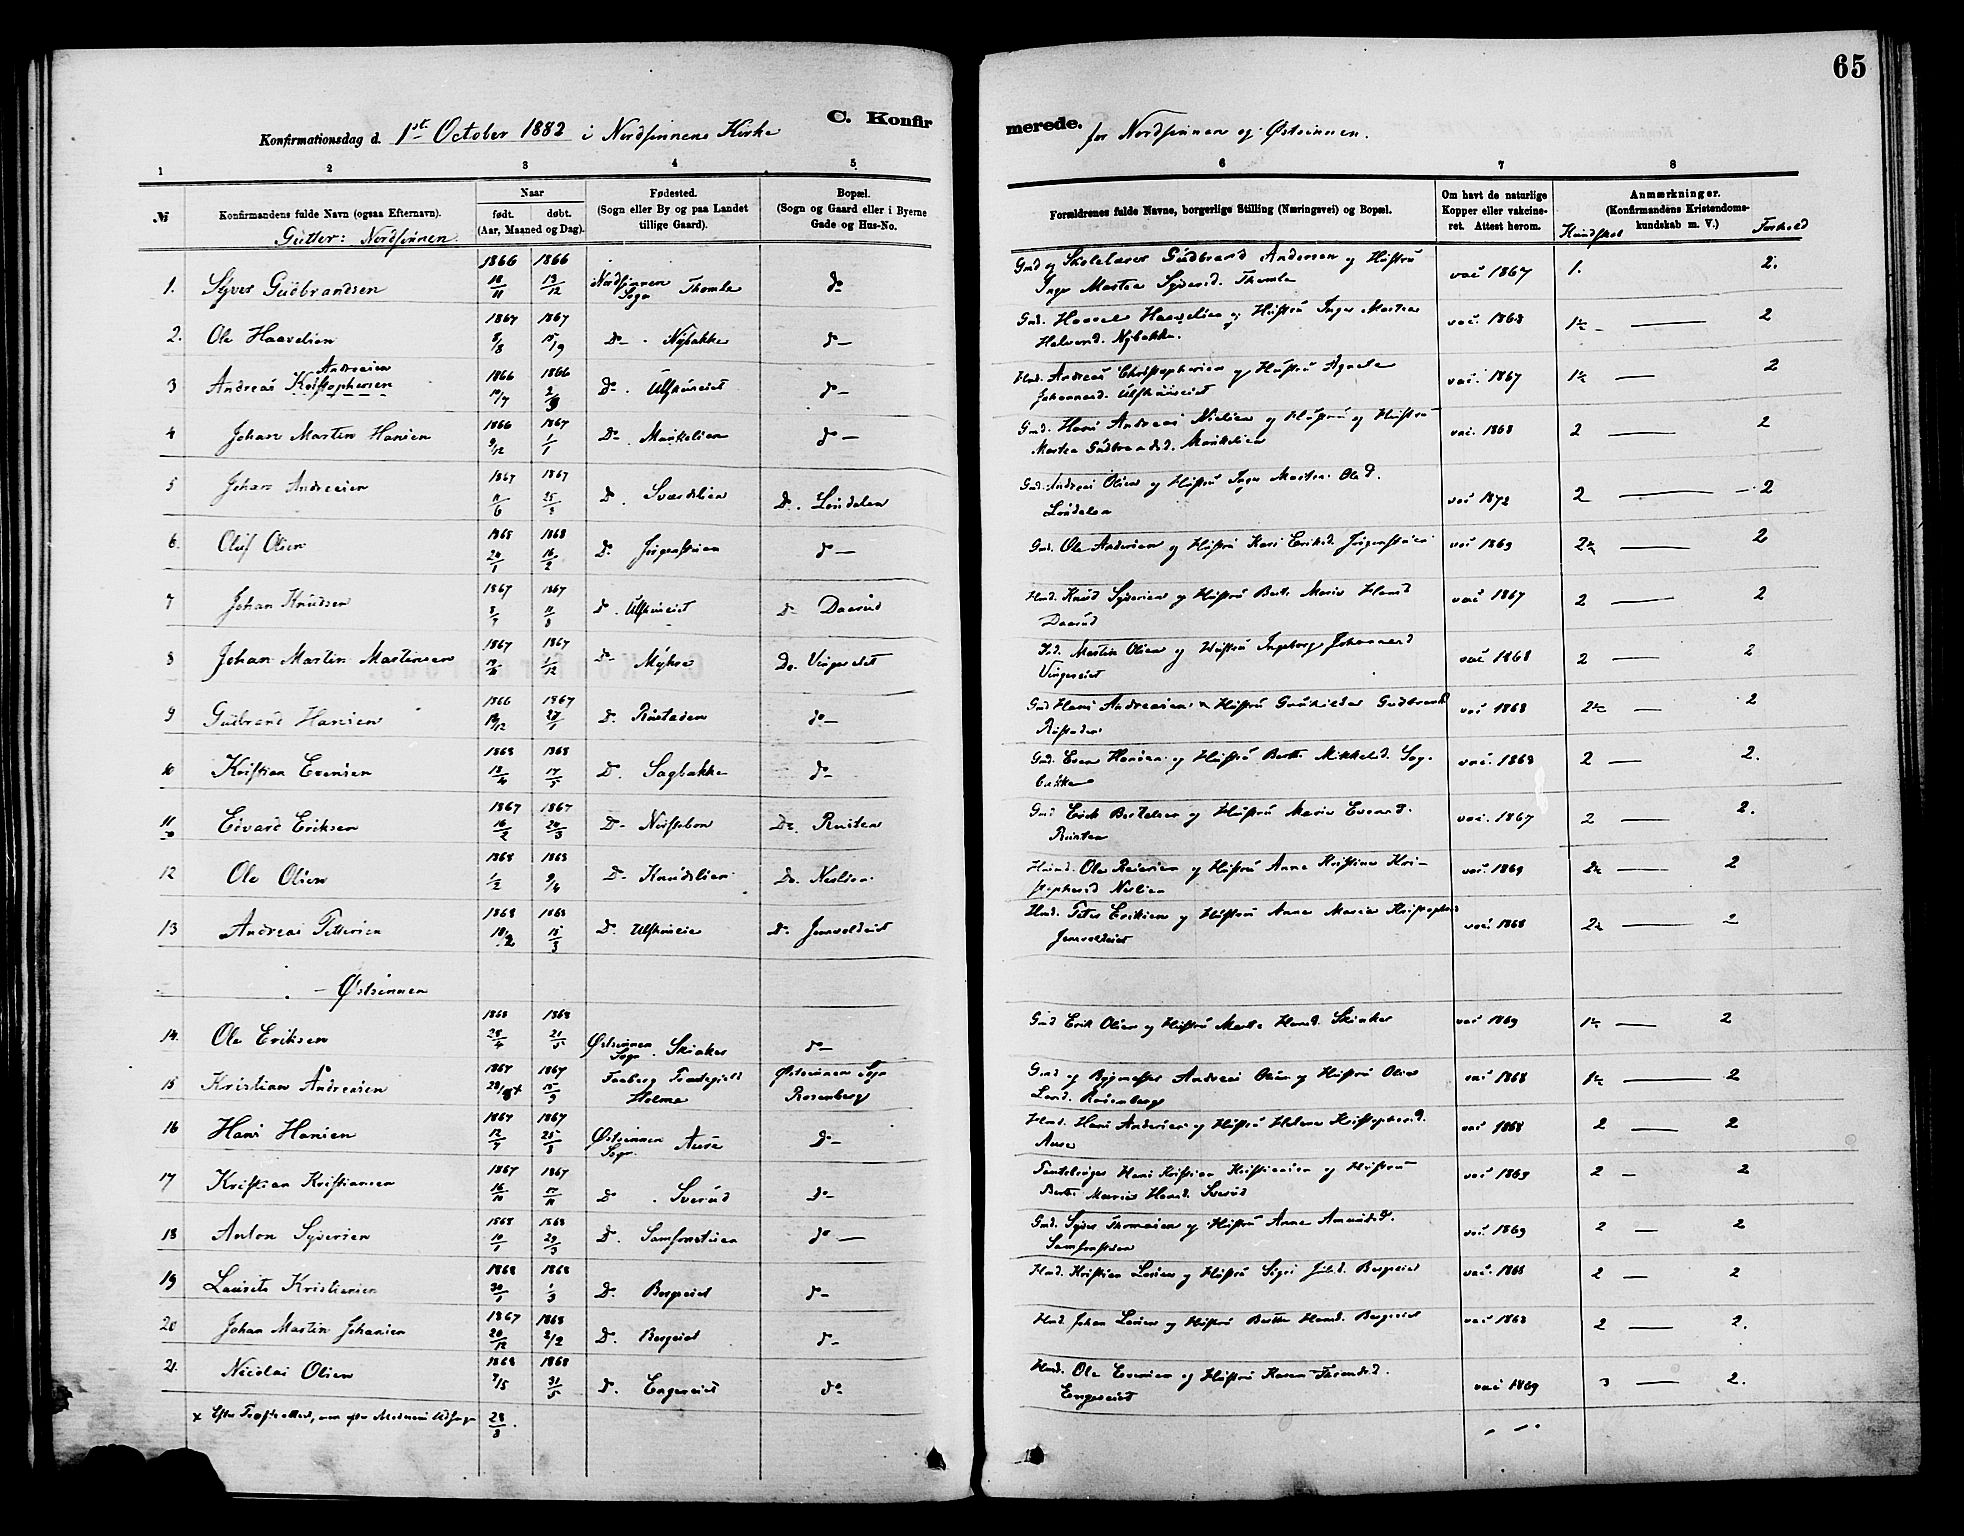 65
C. Konfirmerede.
Konfirmationsdag d. 1st October 1882 i Nordsinnens Kirke for Nordsinnen og Østsinnen.
1 2 3 4 5 6 7 8
№ Konfirmandens fulde Navn (ogsaa Efternavn). Naar født. døbt. (Aar, Maaned og Dag). Fødested. (Sogn eller By og paa Landet tillige Gaard). Bopæl. (Sogn og Gaard eller i Byerne Gade og Hus-No. Forældrenes fulde Navne, borgerlige Stilling (Næringsvei) og Bopæl. Om havt de naturlige Kopper eller vakcineret. Attest herom. Anmærkninger. (Konfirmandens Kristendomskundskab m. V.)
Gutter: Nordsinnen. Kundskab Forhold
1. Syver Gudbrandsen 1866 18/11 1866 13/12 Nordsinnen Sogn Thomle do Gmd og Skolelærer Gudbrand Andersen og Hustru Inger Martea Syversd. Thomle vac 1867 1. 2.
2. Ole Haavelsen 1867 8/8 1867 15/9 Do. Nybakke do Gmd. Haavel Haavelsen og Hustru Inger Martea Halvorsd. Nybakke. vac. 1868 1½ 2
3 Andreas Kristophersen Andreasen 1866 1866 Do. Ulshuseiet do Hmd. Andreas Christophersen og Hustru Agnete Johannesd. Ulshuseiet vac. 1867 1½ 2
4 Johan Martin Hansen 1866 9/12 1867 1/1 Do. do Gmd. Hans Andreas Nielsen og Hustru og Hustru Martea Gudbrandsd. vac. 1868 2 2
5 Johan Andreasen 1867 1867 D. Sværdslien D. Londalen Gmd. Andreas Olsen og Hustru Inger Martea Olsd. Londalen vac 1872 2 2
6. Oluf Olsen 1868 20/1 1868 16/2 D. Jørgenstuen do Gmd. Ole Andersen og Hustru Kari Eriksd. Jørgenstuen vac 1869 2½ 2
7 Johan Knudsen 1867 1867 11/8 D. Ulshuseiet D. Daarud Hmd. Knud Syversen og Hustru Berte Marie Hansd Daarud vac 1867 2 2
8 Johan Martin Martinsen 1867 1867 1/12 Do Myhre Do. Vingereiet Martin Olsen og Hustru Ingeborg Johannesd Vingereiet vac 1868 2 2
9 Gudbrand Hansen 1866 1867 D. Rustaden do Gmd Hans Andreasen Hustru Gudbrandsd Rustaden vac 1868 2½ 2
10 Kristian Evensen 1868 18/4 1868 17/5 D. Sagbakke do Gmd. Even Hansen og Hustru Berthe Mikkelsd. Sagbakke vac. 1868 2 2.
11 Edvard Eriksen 1867 16/2 1867 20/3 D. D. Rusten Gmd Erik Bertelsen og Hustru Marie Evensd. Rusten vac. 1867 2 2.
12 Ole Olsen 1868 1/2 1868 9/4 D. Knudslien Do. Neslien. Hmd. Ole Reiersen og Hustru Anne Kristine Kristophersd Neslien vac. 1869 2½ 2
13 Andreas Pettersen 1868 18/2 1868 15/3 D. Ulshuseie D. Jensvoldeiet Hmd. Peter Eriksen og Hustru Anne Marie Kristophersd Jensvoldeiet vac. 1868 2½ 2
Østsinnen
14. Ole Eriksen 1868 28/4 1868 21/5 Østsinnen Sogn. Skiaker do Gmd Erik Olsen og Hustru Marte Hansd. Skiaker vac 1869 1½ 2
15 Kristian Andreasen 1867 28/8 x 1867 15/9 Faaberg Præstegjeld Holme Østsinnen Sogn Rosenberg Gmd og Andreas Olsen og Hustru Oline Larsd. Rosenberg vac 1868 1½ 2
16 Hans Hansen 1867 12/7 1867 25/8 Østsinnen Sogn. Aure do Hmd. Hans Andersen og Hustru Helene Kristophersd. Aure vac 1868 2 2
17 Kristian Kristiansen 1867 16/10 1867 17/11 D. Sverud do Hans Kristian Kristiansen og Hustru Berthe Marie Hansd. Sverud vac 1869 2 2
18 Anton Syversen 1868 10/1 1868 29/3 D. Samsonstuen do Gmd. Syver Thomasen og Hustru Anne Amundsd. Samsonstuen vac. 1869 2 2
19 Laurits Kristiansen 1868 30/1 1868 1/3 D. Bergeiet do Hmd. Kristian Larsen og Hustru Sigri Bergeiet vac. 1868 2 2
20 Johan Martin Johansen 1867 20/12 1868 2/2 D. Bergeiet do Hmd Johan Larsen og Hustru Berthe Hansd. Bergeiet vac 1868 2 2.
21. Nicolai Olsen 1868 9/5 1868 31/5 D. Engeseiet do Hmd. Ole Evensen og Hustru Karen Engeseiet vac 1869 3 2.
x Efter men efter Moderens Udsagn 28/8.